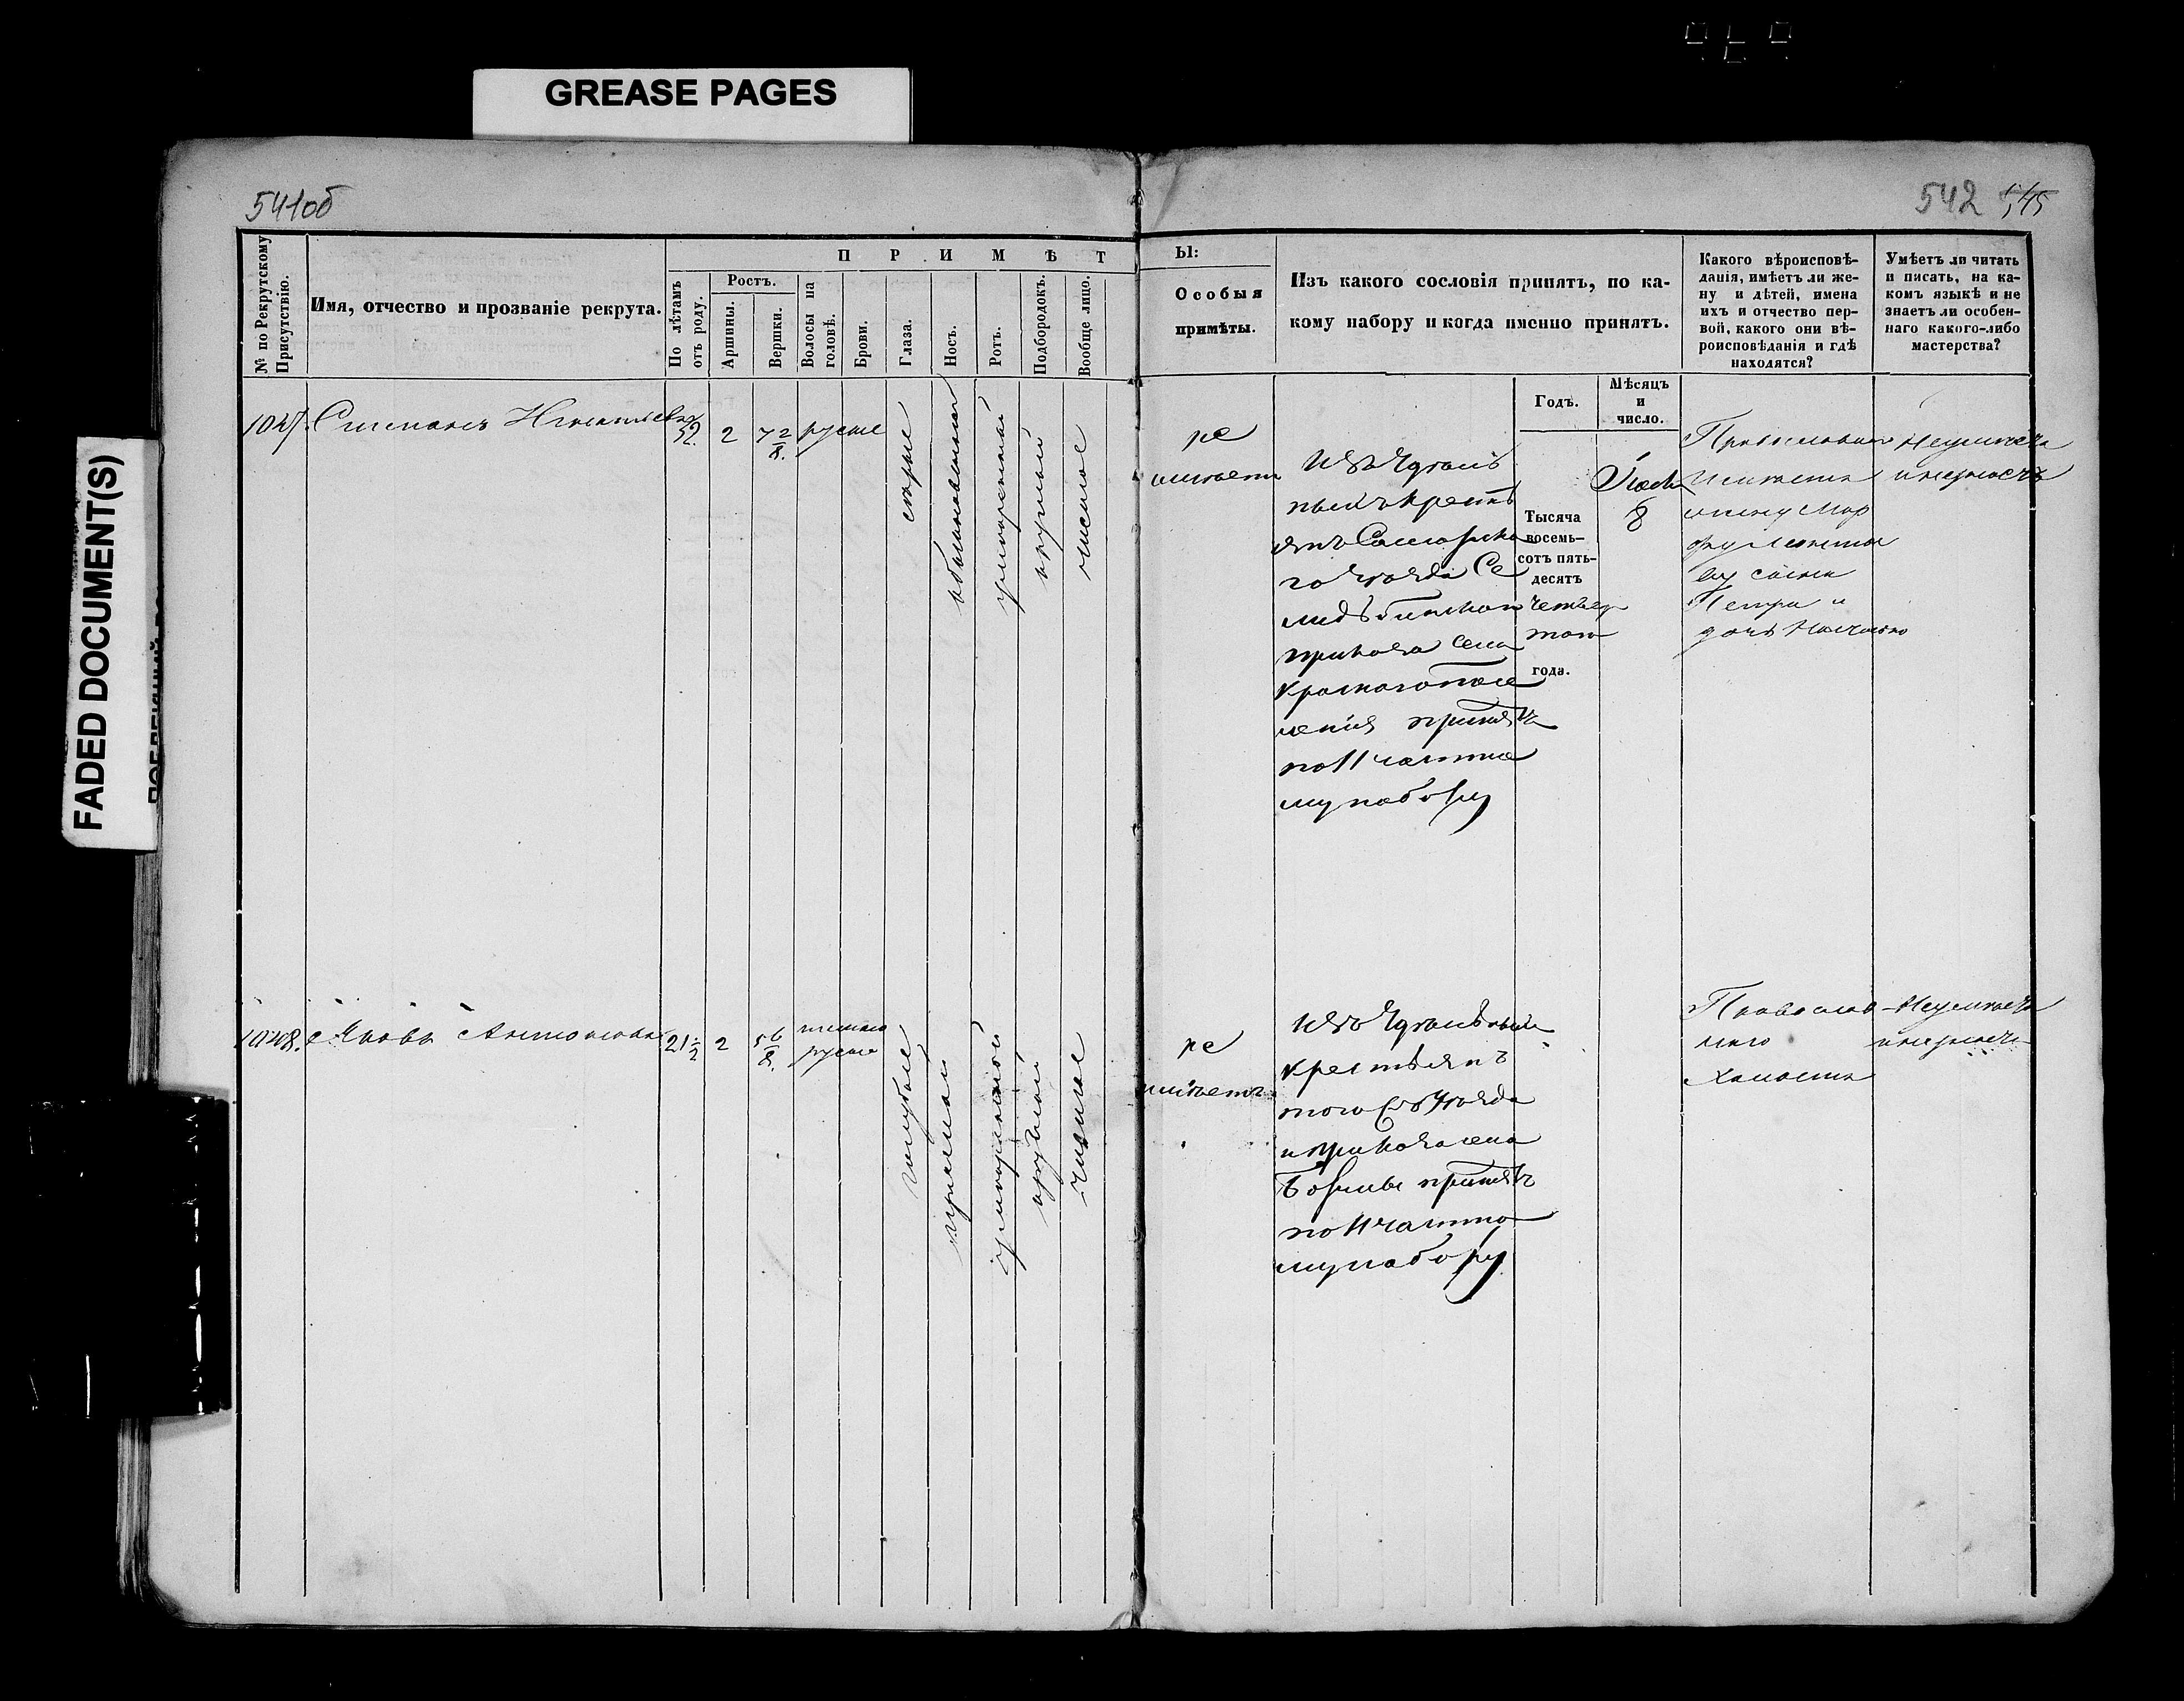 GREASE PAGES
FADED DOCUMENT(S)
541об
542 545
№ по Рекрутскому
Присутствію.
Имя, отчество и прозваніе рекрута.
П Р И М Ѣ Т
Ы:
По лѣтамъ
отъ роду.
Ростъ.
Аршины.
Вершки.
Волосы на
головѣ.
Брови.
Глаза.
Носъ.
Ротъ.
Подбородокъ.
Вообще лицо.
Особыя
примѣты.
Изъ какого сословія принятъ, по ка-
кому набору и когда именно принятъ.
Какого вѣроисповѣ-
данія, имѣетъ ли же-
ну и дѣтей, имена
ихъ и отчество пер-
вой, какого они вѣ-
роисповѣданія и гдѣ
находятся?
Умѣетъ ли читать
и писать, на ка-
комъ языкѣ и не
знаетъ ли особен-
наго какого-либо
мастерства?
Годъ.
Мѣсяцъ
и
число.
1047. Степанъ
32
2
7 2/8.
русые
сѣрые
обыкновенный
умѣренный
круглый
чистое
не
имѣетъ
Изъ Удѣль
ныхъ кресть
янъ Самарска
го Уѣзда
приказа села
принятъ
по 11 частно
му набору
Тысяча
восемь-
сотъ пять-
десятъ
четвер
таго
года.
8
Православ
имѣетъ
жену Мар
фу
сына
Петра и
дочь
Неумѣетъ
1048. Яковъ Антоновъ
21 1/2
2
5 6/8.
темно
русые
голубые
прямой
умѣренный
круглый
чистое
не
имѣетъ
Изъ Удѣльныхъ
крестьянъ
того жъ Уѣзда
и приказа села
Бормы принятъ
по 11 частно
му набору
Православ
наго
Холостъ
Неумѣетъ